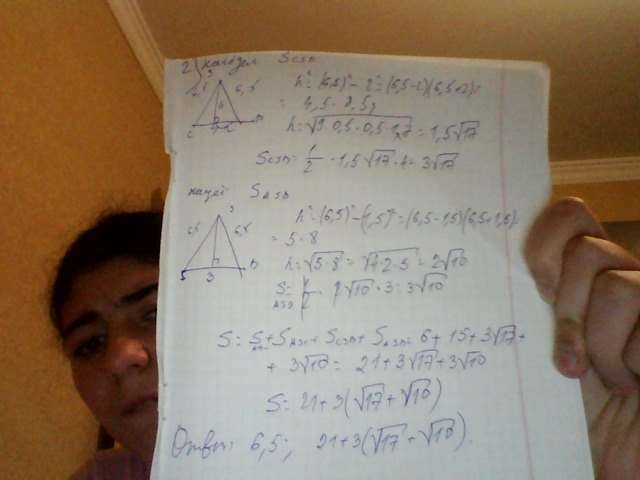 2) найдем S CSD
h² = (6,5)² - 2² = (6,5-2)(6,5+2) =
= 4,5 · 8,5 =
h = √9·0,5·0,5·17 = 1,5√17
S CSD = 1/2 · 1,5√17 · 4 = 3√17
найдем S ASD
h² = (6,5)² - (1,5)² = (6,5-1,5)(6,5+1,5)
= 5·8
h = √5·8 = √4·2·5 = 2√10
S ASD = 1/2 · 2√10 · 3 = 3√10
S = S + S + S CSD + S ASD = 6 + 15 + 3√17 +
+ 3√10 = 21 + 3√17 + 3√10
S = 21 + 3(√17 + √10)
Ответ: 6,5; 21 + 3(√17 + √10).